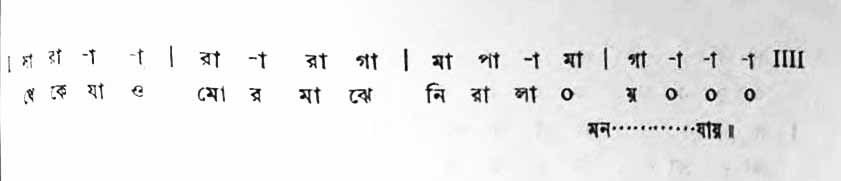 | সা রা -া -া | রা -া রা গা | মা পা -া মা | গা -া -া -া IIII
থে কে যা ও মো র মা ঝে নি রা লা ০ য় ০ ০ ০
মন············যায়॥